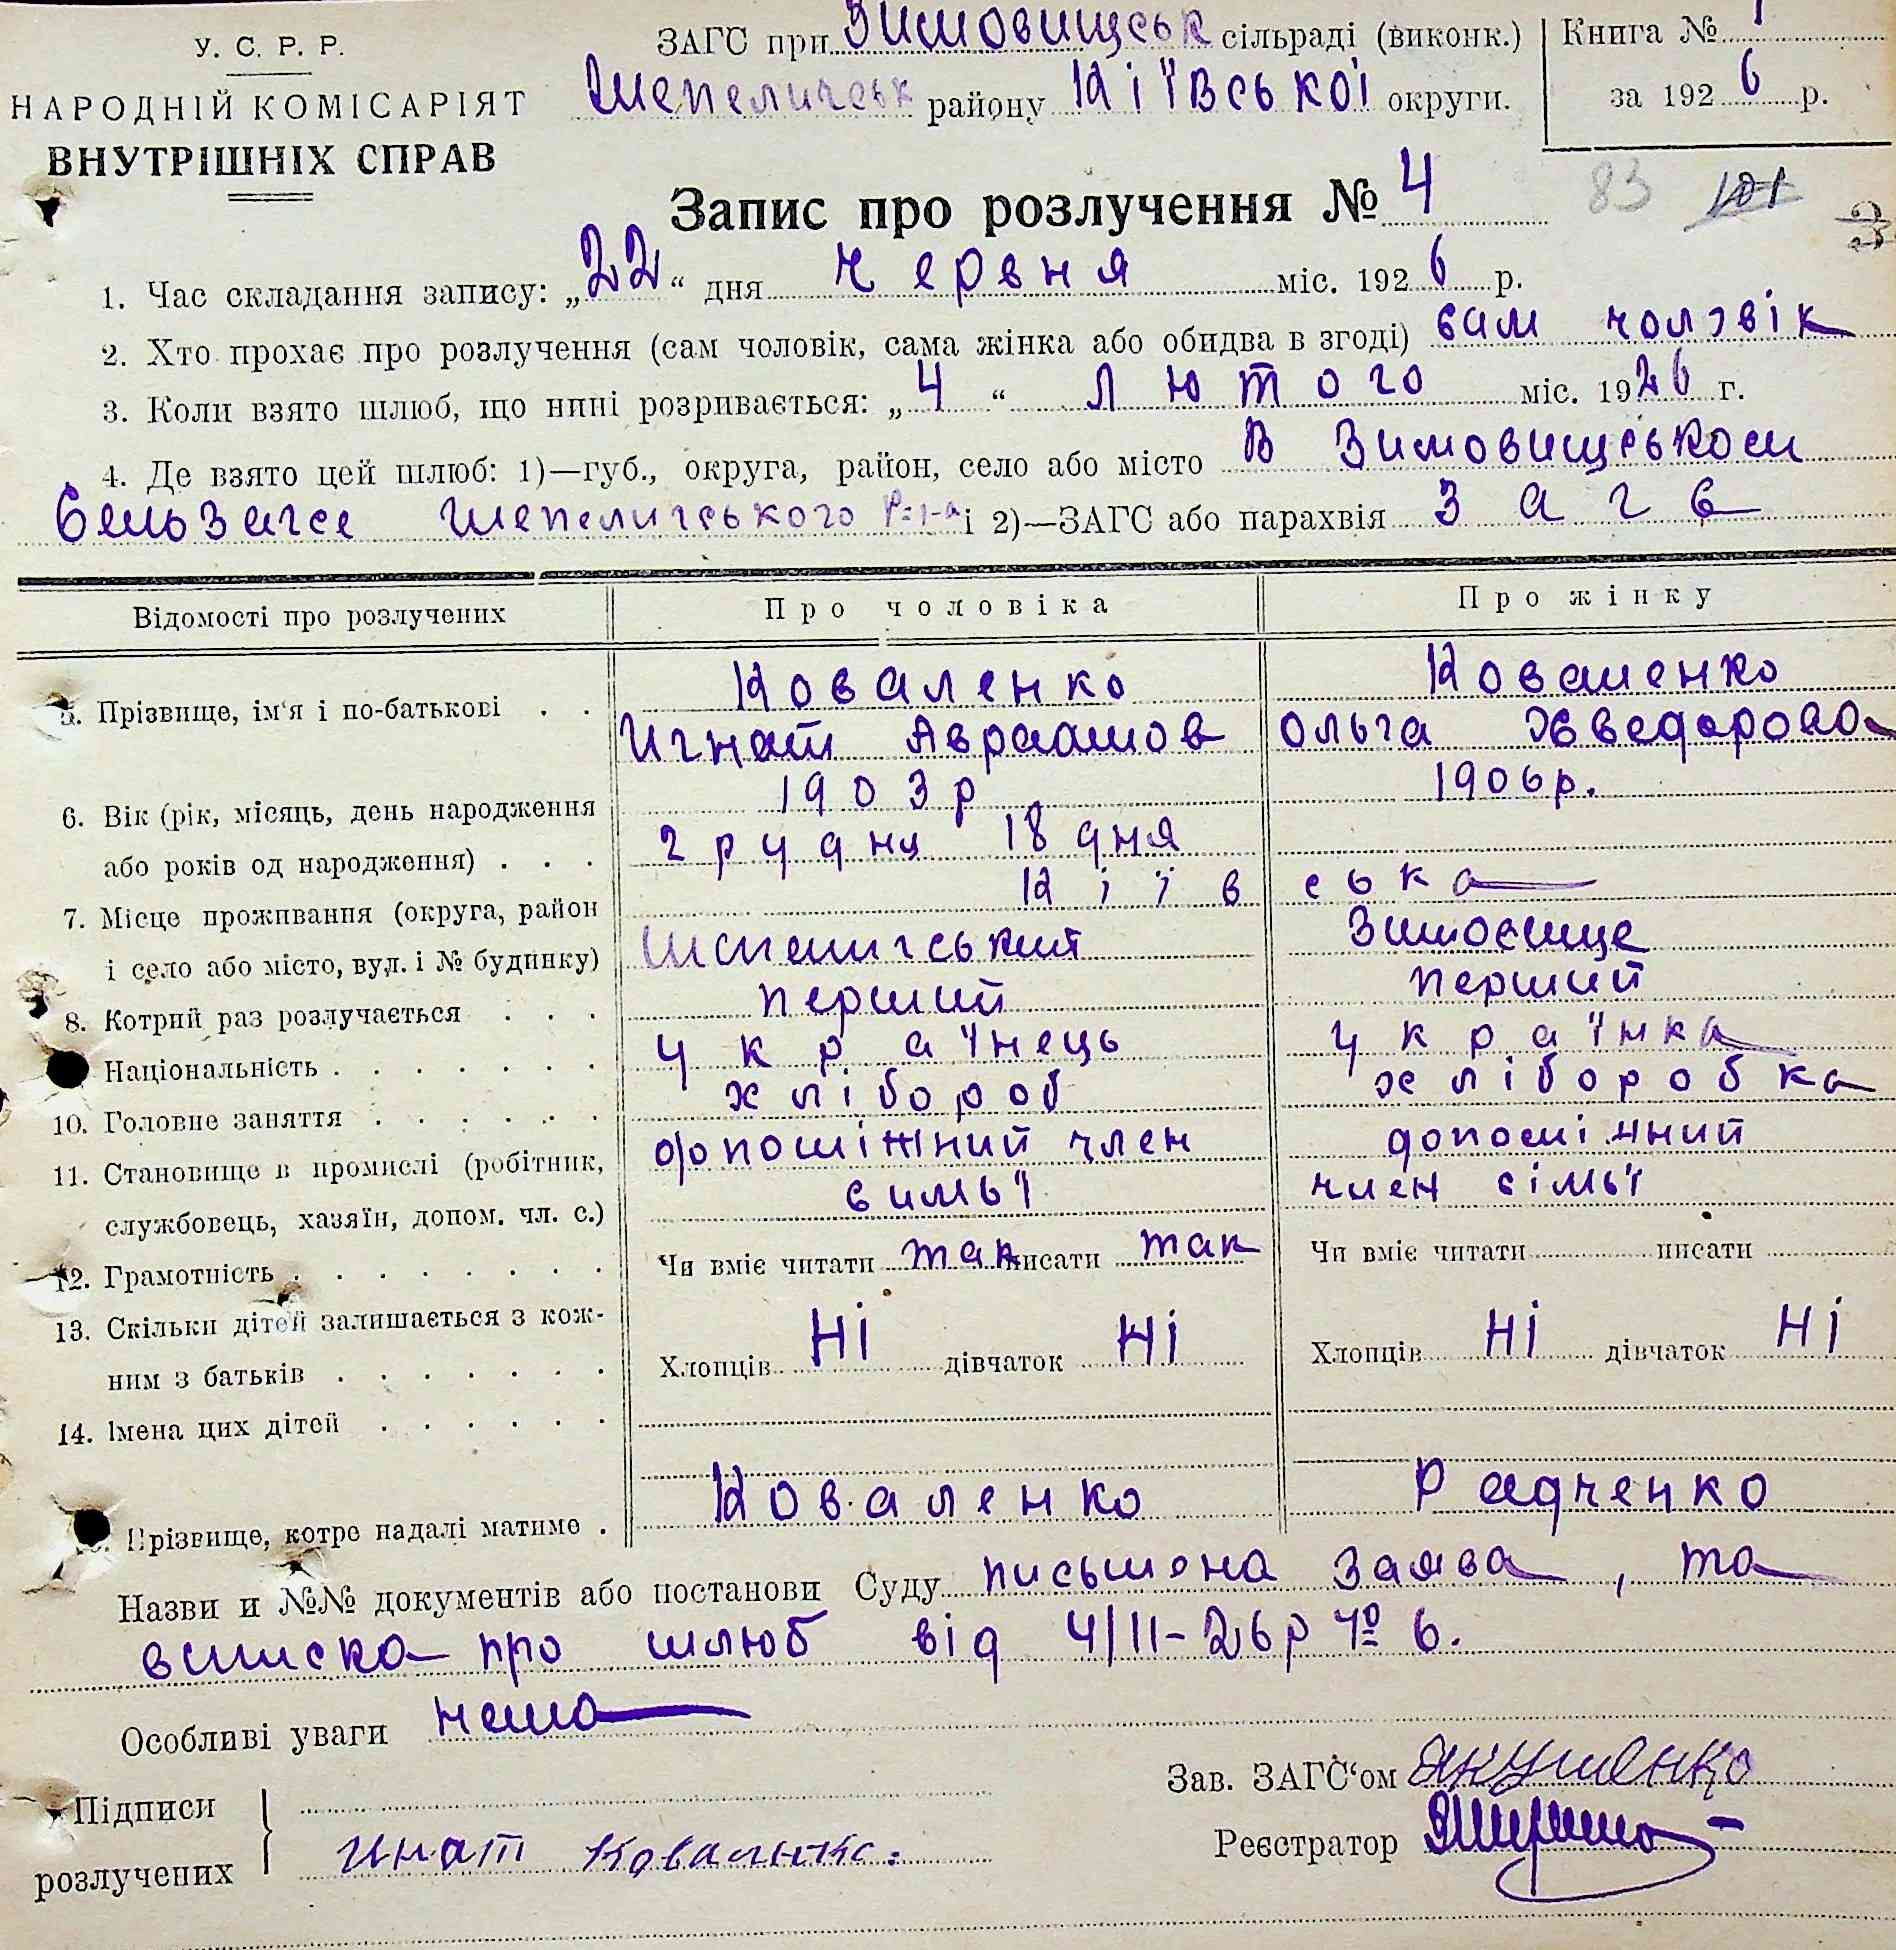 У. С. Р. Р.
НАРОДНІЙ КОМІСАРІЯТ
ВНУТРІШНІХ СПРАВ
ЗАГС при Зимовищськ сільраді (виконк.)
Шепеличськ району Київської округи.
Книга № 1
за 1926 р.
Запис про розлучення № 4
83 101
1. Час складання запису: „22“ дня червня міс. 1926 р.
2. Хто прохає про розлучення (сам чоловік, сама жінка або обидва в згоді) сам чоловік
3. Коли взято шлюб, що нині розривається: „4“ лютого міс. 1926 г.
4. Де взято цей шлюб: 1)—губ., округа, район, село або місто в Зимовищськом
сельзагсе Шепеличського р=і-а і 2)—ЗАГС або парахвія Загс
Відомості про розлучених Про чоловіка Про жінку
5. Прізвище, ім'я і по-батькові . . Коваленко Коваленко
Игнат Авраамов Ольга Хведорова
6. Вік (рік, місяць, день народження 1903 р 1906 р.
або років од народження) . . . грудня 18 дня
7. Місце проживання (округа, район Київ ська
і село або місто, вул. і № будинку) Шепеличський Зимовище
8. Котрий раз розлучається . . . перший перший
Національність . . . . . . . українець українка
10. Головне заняття . . . . . . хлібороб хліборобка
11. Становище в промислі (робітник, допоміжний член допоміжний
службовець, хазяїн, допом. чл. с.) симьї член сімьї
12. Грамотність . . . . . . . Чи вміє читати так писати так Чи вміє читати писати
13. Скільки дітей залишається з кож-
ним з батьків . . . . . . . Хлопців ні дівчаток ні Хлопців ні дівчаток ні
14. Імена цих дітей . . . . . .
Прізвище, котре надалі матиме . Коваленко Радченко
Назви и №№ документів або постанови Суду письмена заява, та
виписка про шлюб від 4/II-26р № 6.
Особливі уваги нема
Зав. ЗАГС‘ом Якушенко
Підписи
розлучених Инат Коваленко.
Реєстратор